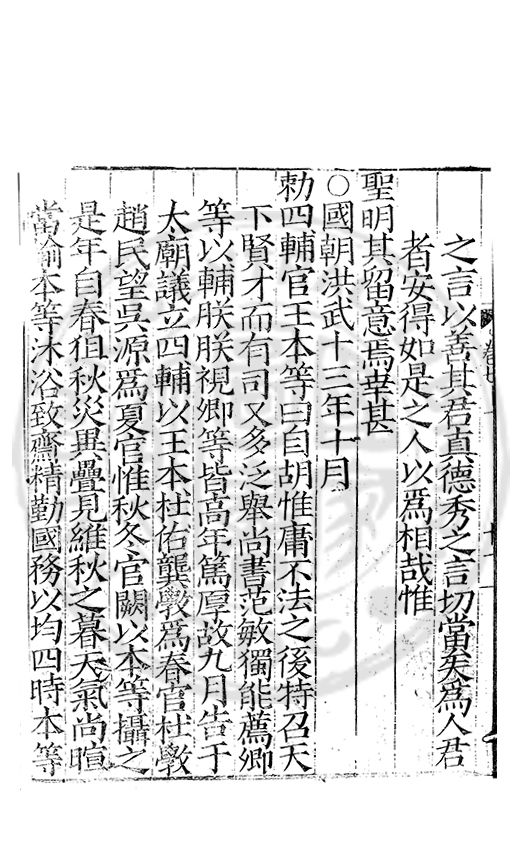 之言以善其君真德秀之言切當矣爲人君
者安得如是之人以爲相哉惟
聖明其留意焉幸甚
○國朝洪武十三年十月
勅四輔官王本等曰自胡惟庸不法之後特召天
下賢才而有司又多泛舉尚書范敏獨能薦卿
等以輔朕朕視卿等皆高年篤厚故九月告于
太廟議立四輔以王本杜佑龔斆爲春官杜斆
趙民望吳源爲夏官惟秋冬官闕以本等攝之
是年自春徂秋災異疊見維秋之暮天氣尚暄
當諭本等沐浴致齋精勤國務以均四時本等